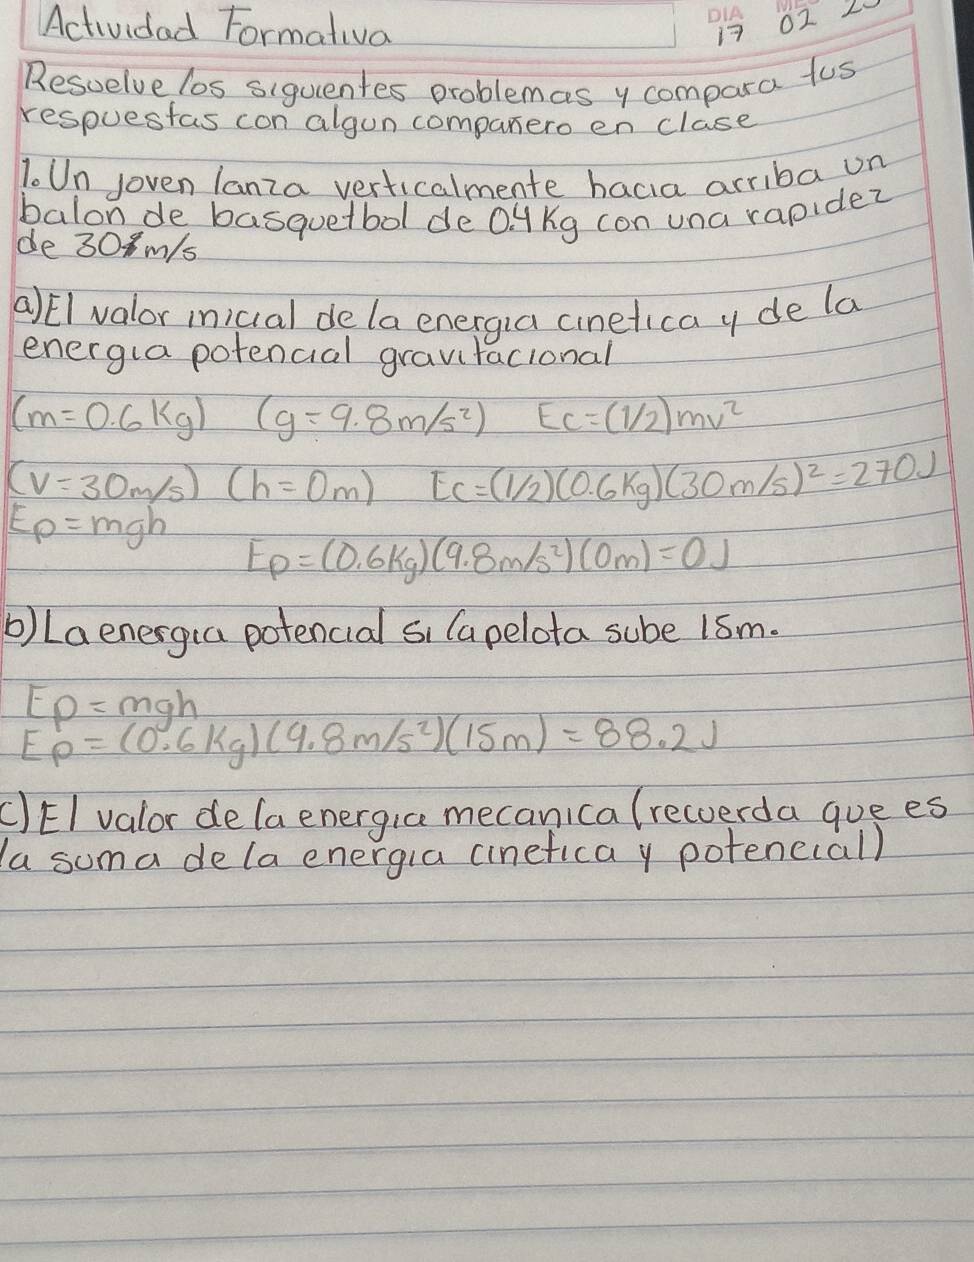 Actividad Formativa
DIA 17 02
Resuelve los siguientes problemas y compara tus
respuestas con algun compañero en clase
1. Un joven lanza verticalmente hacia arriba un
balon de basquetbol de 0.4 Kg con una rapidez
de 30 m/s
a) El valor inicial de la energia cinetica y de la
energia potencial gravitacional
(m=0.6 Kg) (g=9.8 m/s²) Ec=(1/2)mv²
(v=30m/s) (h=0m) Ec=(1/2)(0.6Kg)(30m/s)²=270J
Ep=mgh
Ep=(0.6Kg)(9.8m/s²)(0m)=0J
b) La energia potencial si la pelota sube 15m.
Ep=mgh
Ep=(0.6Kg)(9.8m/s²)(15m)=88.2J
c) El valor de la energia mecanica (recuerda que es
la suma de la energia cinetica y potencial)